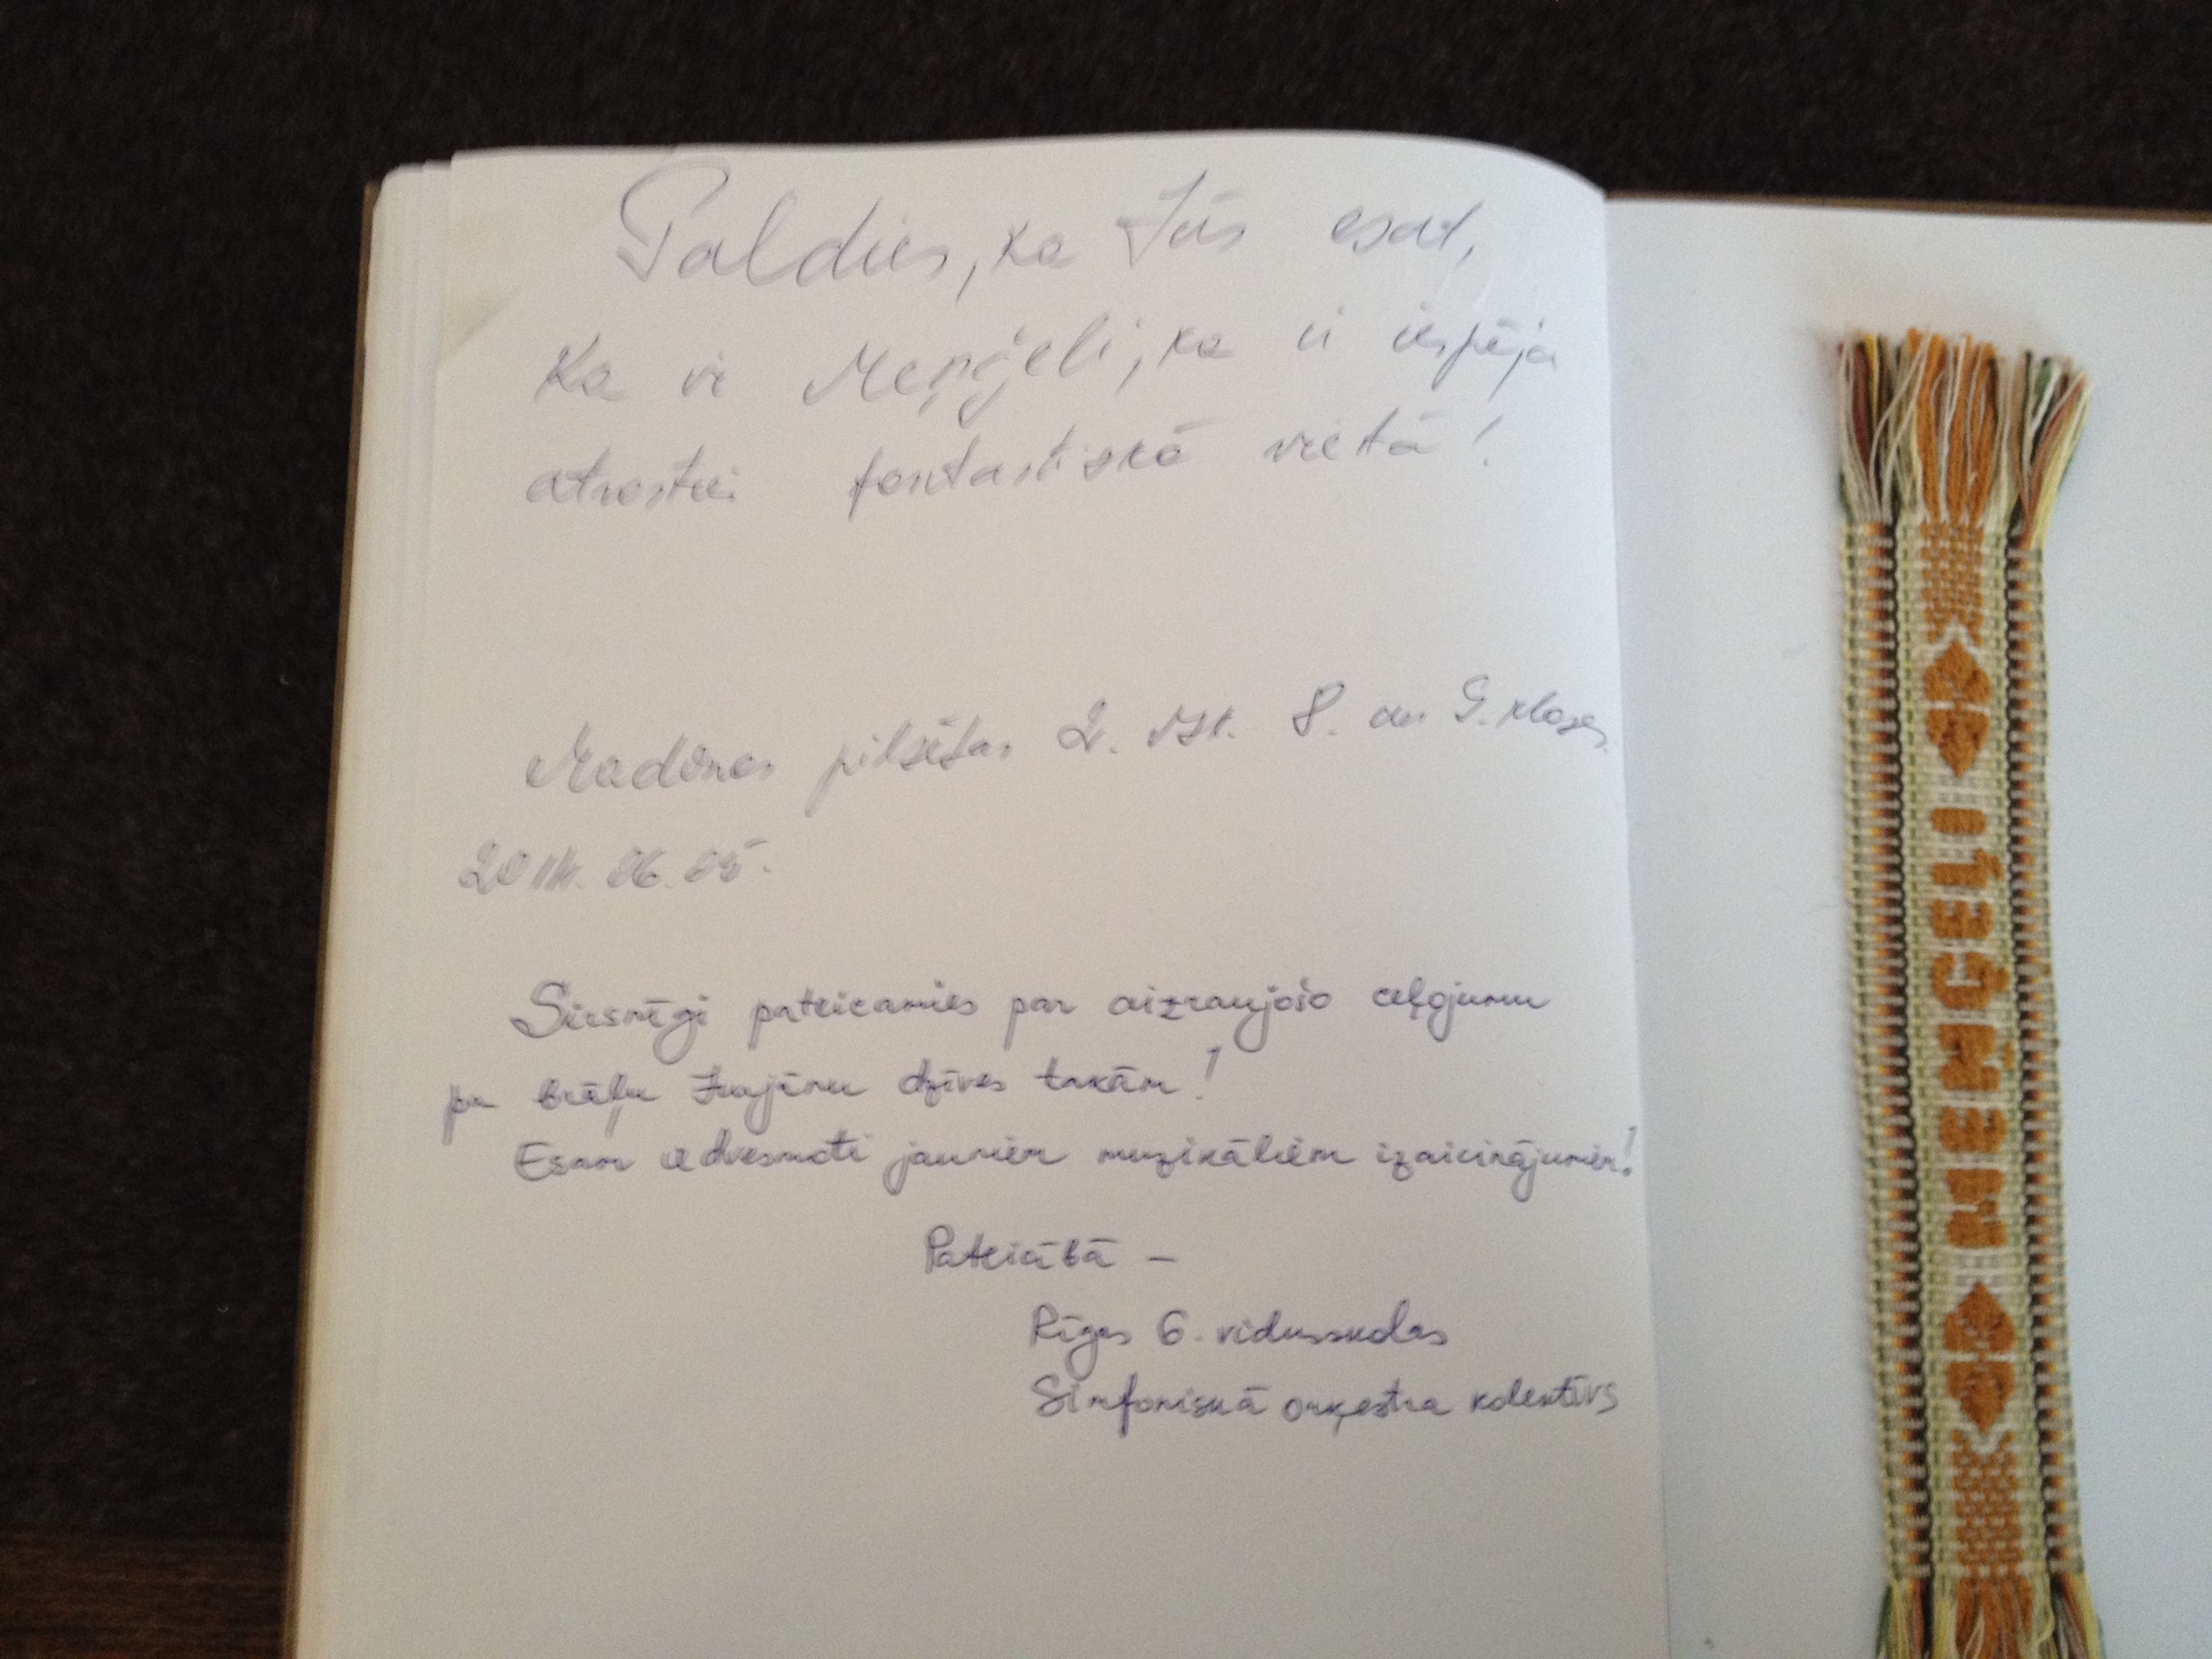 Paldies, ka Jūs esat,
Ka ir Meņģeļi, ka ir iespēja
atrasties fantastiskā vietā!
Madonas pilsētas 2. vsk. 8. un 9. klases.
06.05.
Sirsnīgi pateicamies par aizraujošo ceļojumu
pa brāļu Jurjānu dzīves takām!
Esam iedvesmoti jauniem muzikāliem izaicinājumiem!
Pateicībā –
Rīgas 6. vidusskolas
Simfoniskā orķestra kolektīvs
MEŅĢEĻI